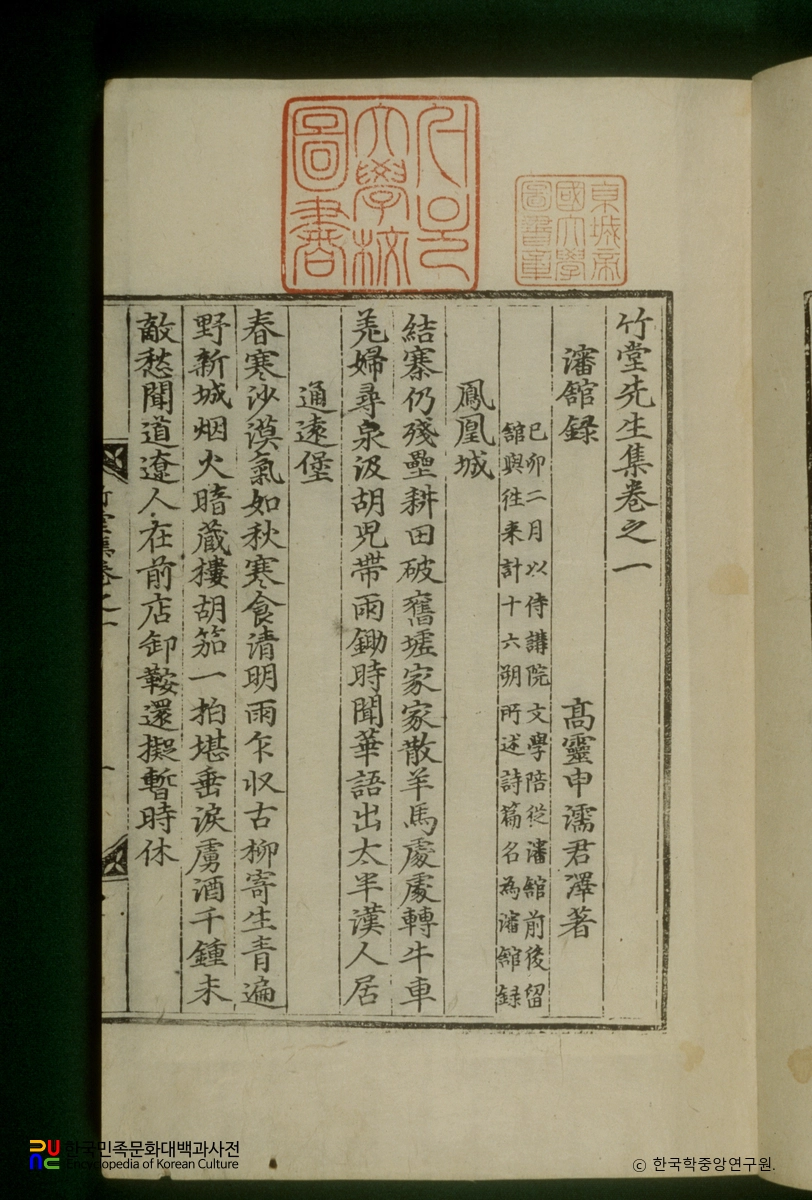 竹堂先生集卷之一
瀋舘録
高靈申濡君澤著
己卯二月以侍講院文學陪從瀋舘前後留
舘與往来計十六朔所述詩篇名為瀋舘録
鳳凰城
結寨仍殘壘耕田破舊墟家家散羊馬處處轉牛車
羌婦尋泉汲胡児帶雨鋤時聞華語出太半漢人居
通遠堡
春寒沙漠氣如秋寒食清明雨乍收古柳寄生青遍
野新城烟火暗藏樓胡笳一拍堪垂淚虜酒千鍾未
敵愁聞道遼人在前店卸鞍還擬暫時休
東城帝
國大學
圖書章
大學校
圖書
한국민족문화대백과사전
Encyclopedia of Korean Culture
© 한국학중앙연구원.